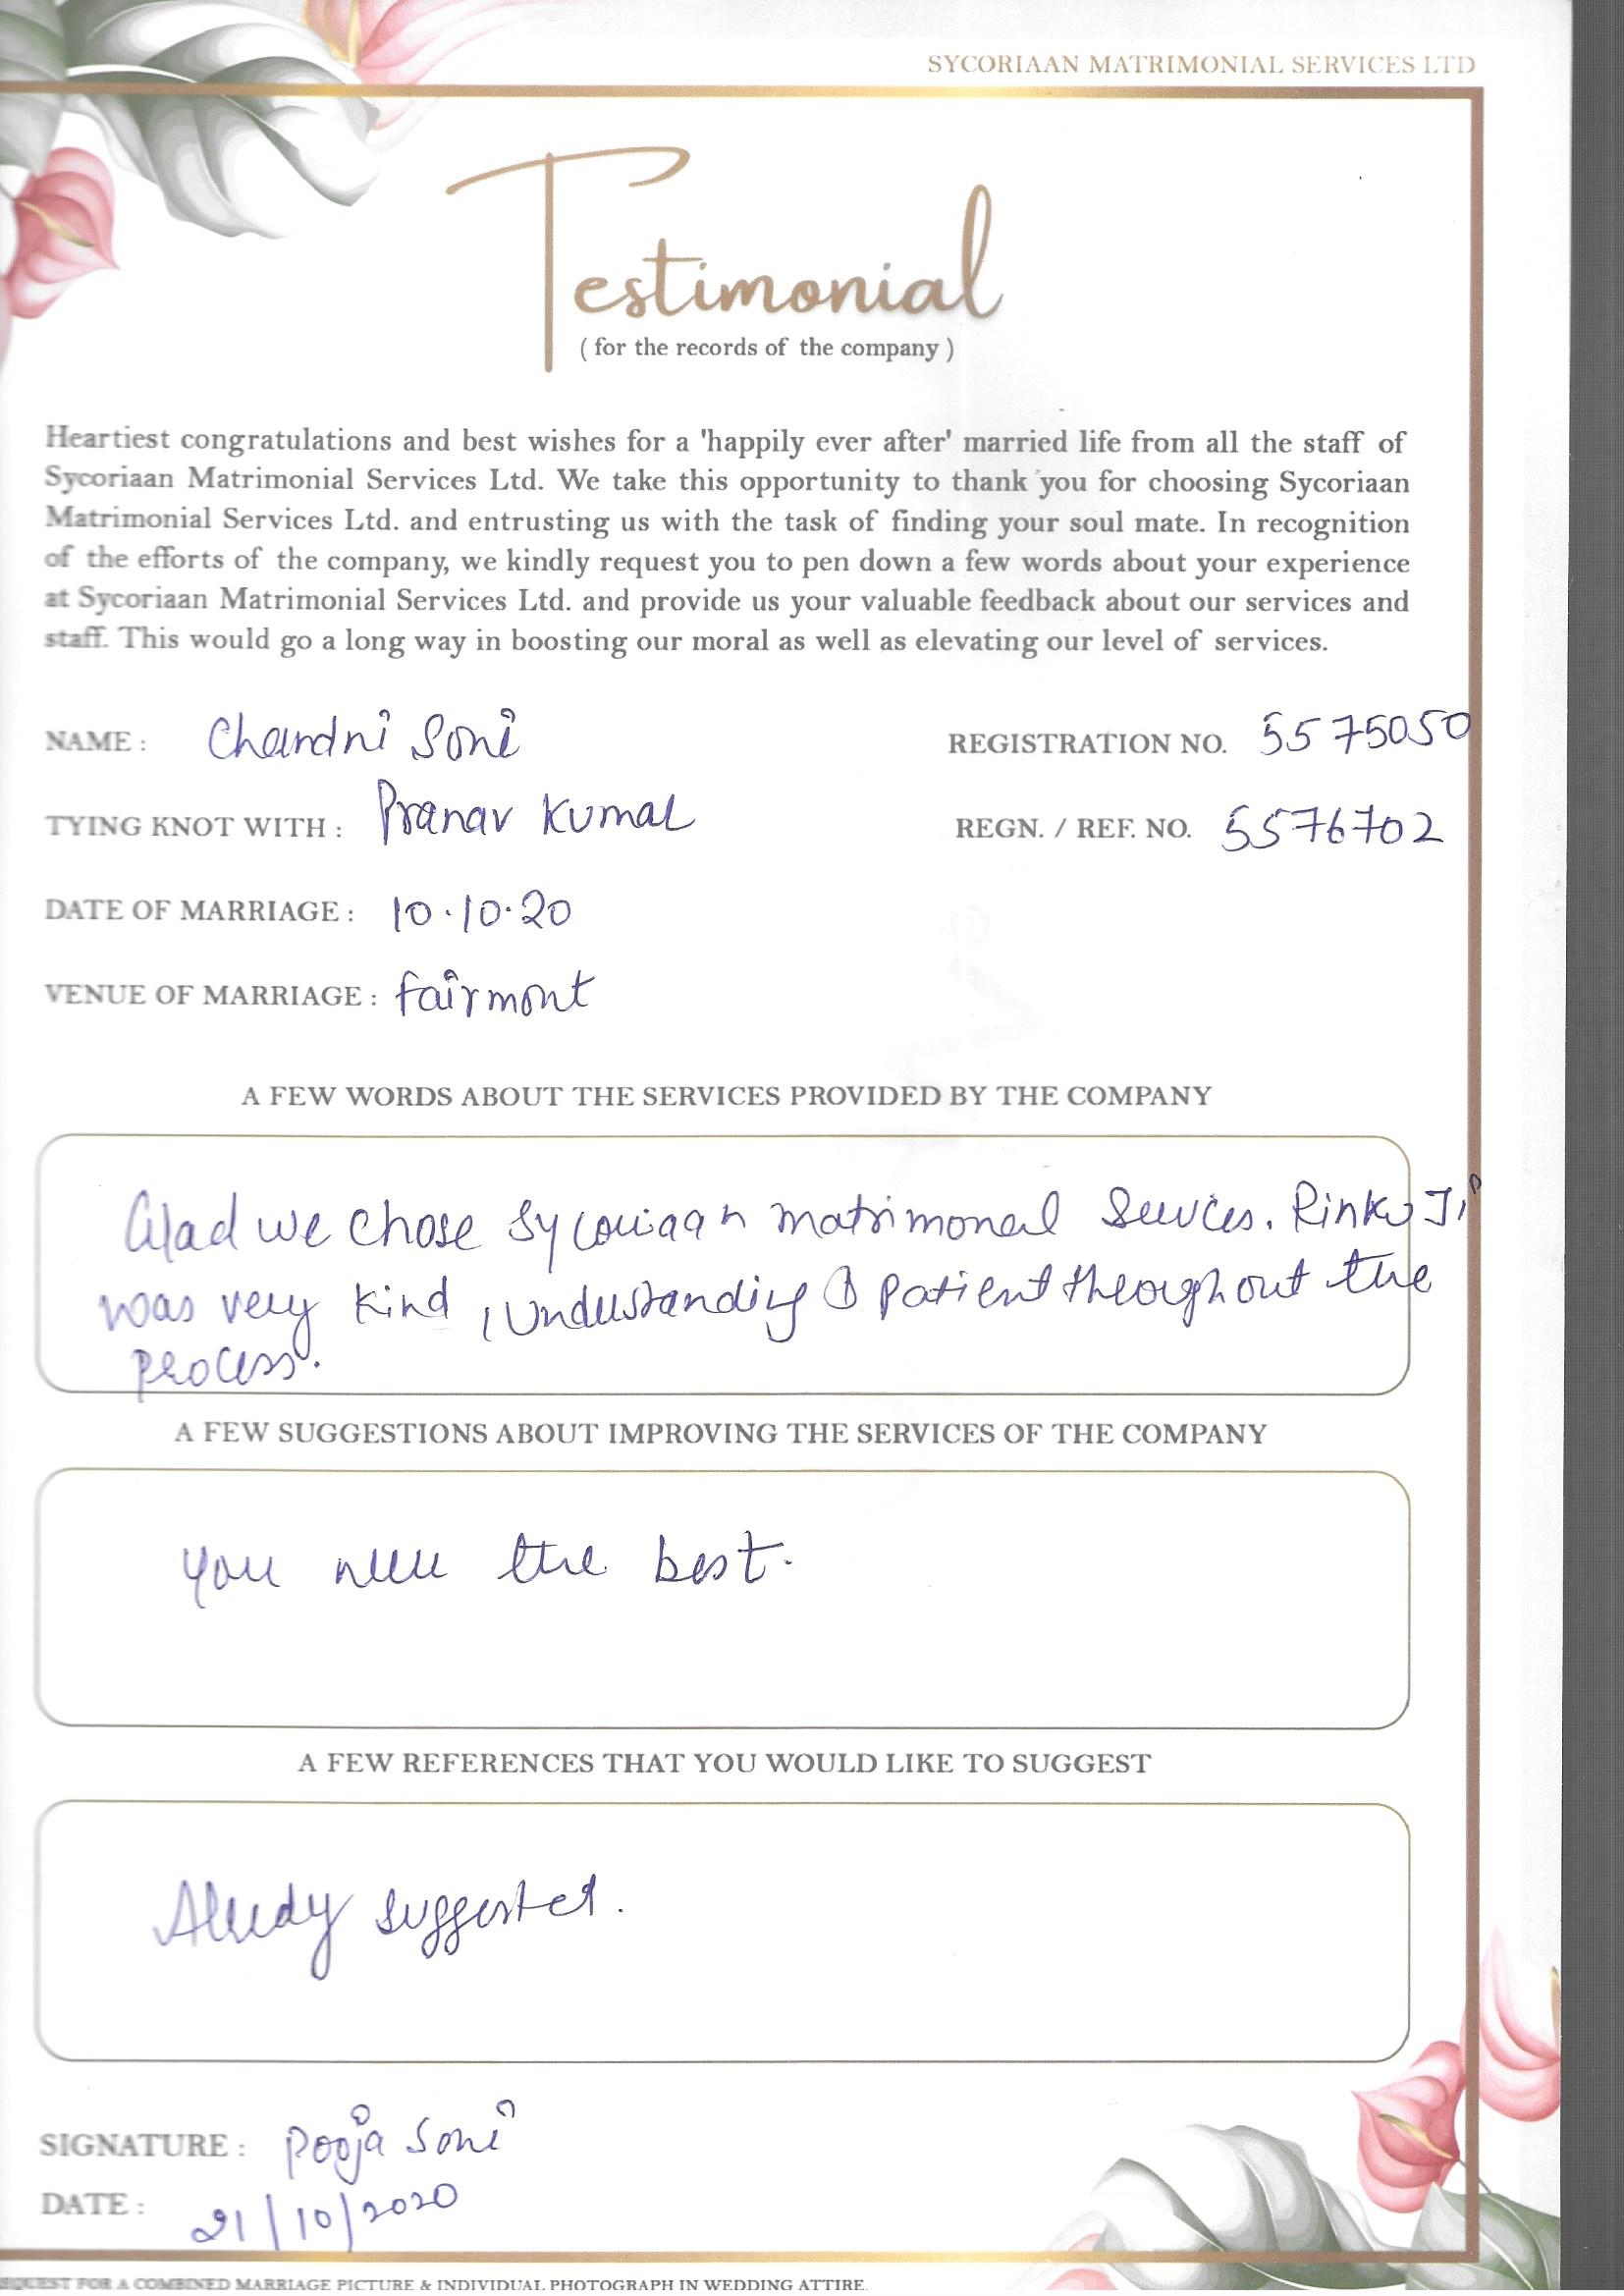 SYCORIAAN MATRIMONIAL SERVICES LTD
Testimonial
( for the records of the company )
Heartiest congratulations and best wishes for a 'happily ever after' married life from all the staff of
Sycoriaan Matrimonial Services Ltd. We take this opportunity to thank you for choosing Sycoriaan
Matrimonial Services Ltd. and entrusting us with the task of finding your soul mate. In recognition
of the efforts of the company, we kindly request you to pen down a few words about your experience
at Sycoriaan Matrimonial Services Ltd. and provide us your valuable feedback about our services and
staff. This would go a long way in boosting our moral as well as elevating our level of services.
NAME : Chandni Soni REGISTRATION NO. 5575050
TYING KNOT WITH : Pranav Kumar REGN. / REF. NO. 5576702
DATE OF MARRIAGE : 10.10.20
VENUE OF MARRIAGE : fairmont
A FEW WORDS ABOUT THE SERVICES PROVIDED BY THE COMPANY
Glad we chose Sycoriaan matrimoneal Services. Rinku Ji
was very kind, understanding & patient theoughout the
process.
A FEW SUGGESTIONS ABOUT IMPROVING THE SERVICES OF THE COMPANY
You were the best.
A FEW REFERENCES THAT YOU WOULD LIKE TO SUGGEST
Alredy suggested.
SIGNATURE : Pooja Soni
DATE : 21/10/2020
EQUEST FOR A COMBINED MARRIAGE PICTURE & INDIVIDUAL PHOTOGRAPH IN WEDDING ATTIRE.